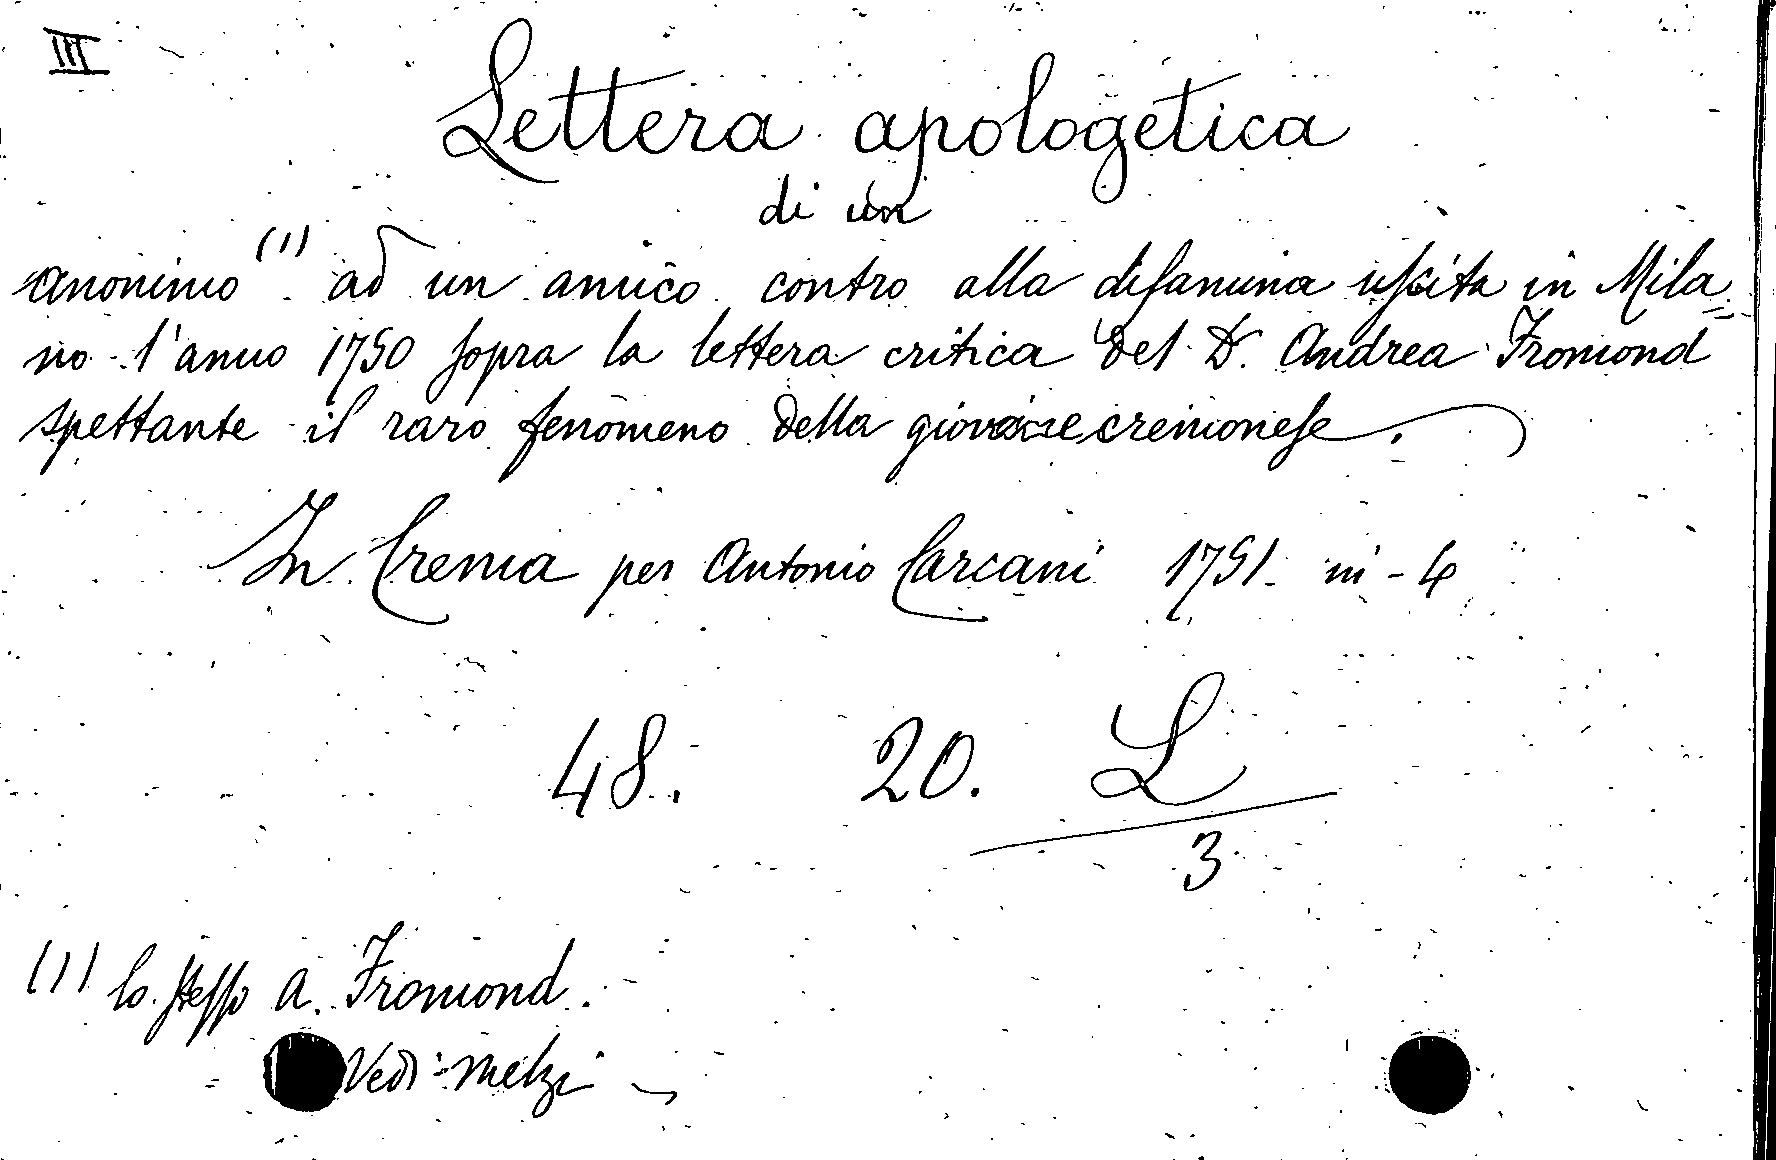 III
Lettera apologetica
di un
anonimo (1) ad un amico contro alla disamina uscita in Mila=
no l'anno 1750 sopra la lettera critica del D. Andrea Fromond
spettante il raro fenomeno della giovane cremonese.
In Crema per Antonio Carcani 1751. in-4
48. 20. L
3
(1) lo stesso A. Fromond.
Vedi Melzi